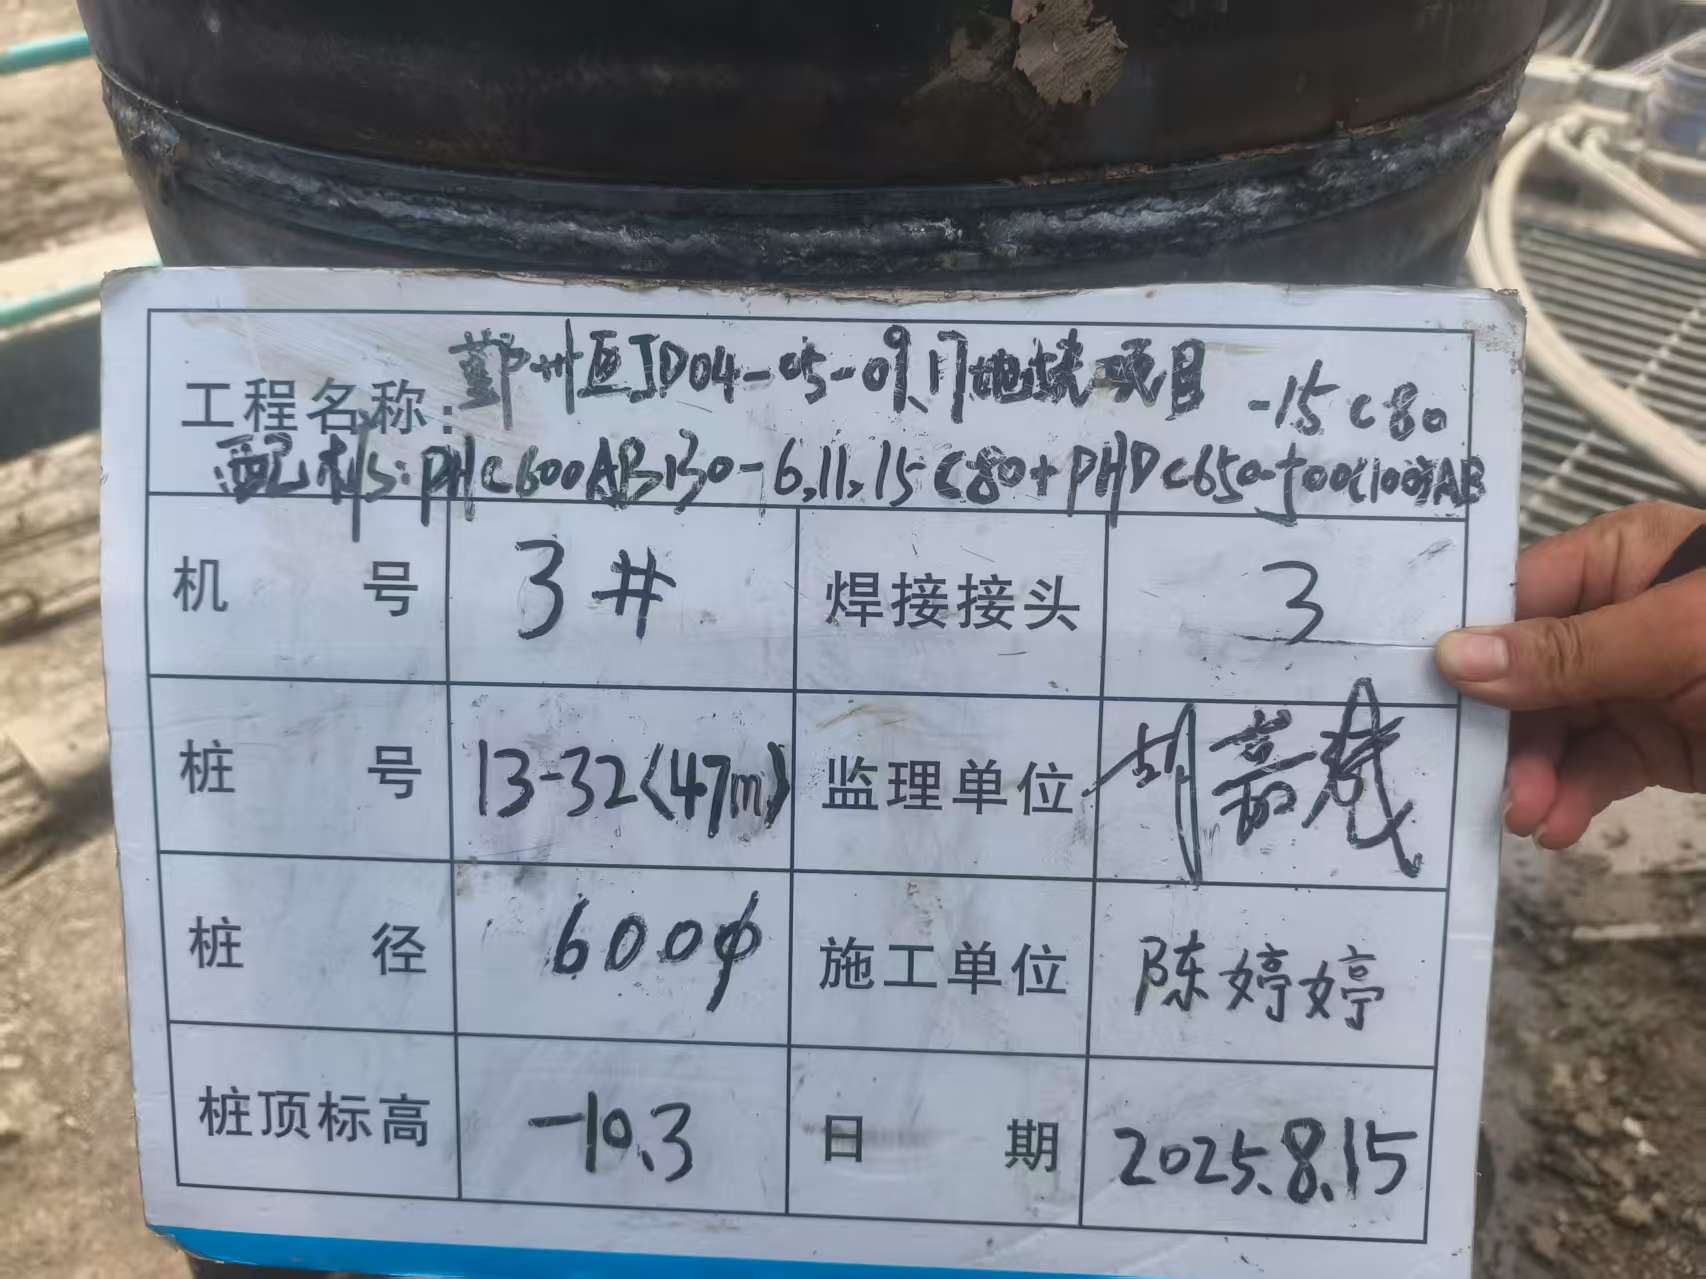 工程名称: 鄞州区JD04-05-09.17地块项目
-15 C80
配桩: PHC600AB130-6,11,15 C80+PHDC650-500(100)AB
机 号 3# 焊接接头 3
桩 号 13-32(47m) 监理单位 胡嘉
桩 径 600ф 施工单位 陈婷婷
桩顶标高 -10.3 日 期 2025.8.15